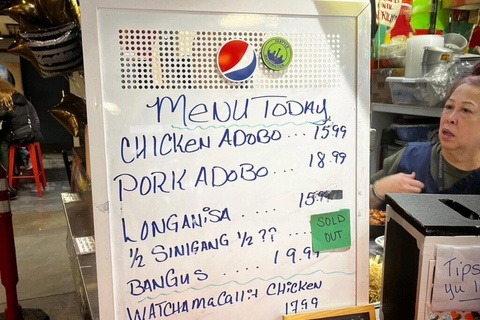 MENU TODAY
CHICKEN ADOBO ... 15.99
PORK ADOBO ... 18.99
LONGANISA .... 15.99
SOLD OUT
½ SINIGANG ½ ??
BANGUS .... 19.99
WATCHAMACALLIT CHICKEN
17.99
Tips